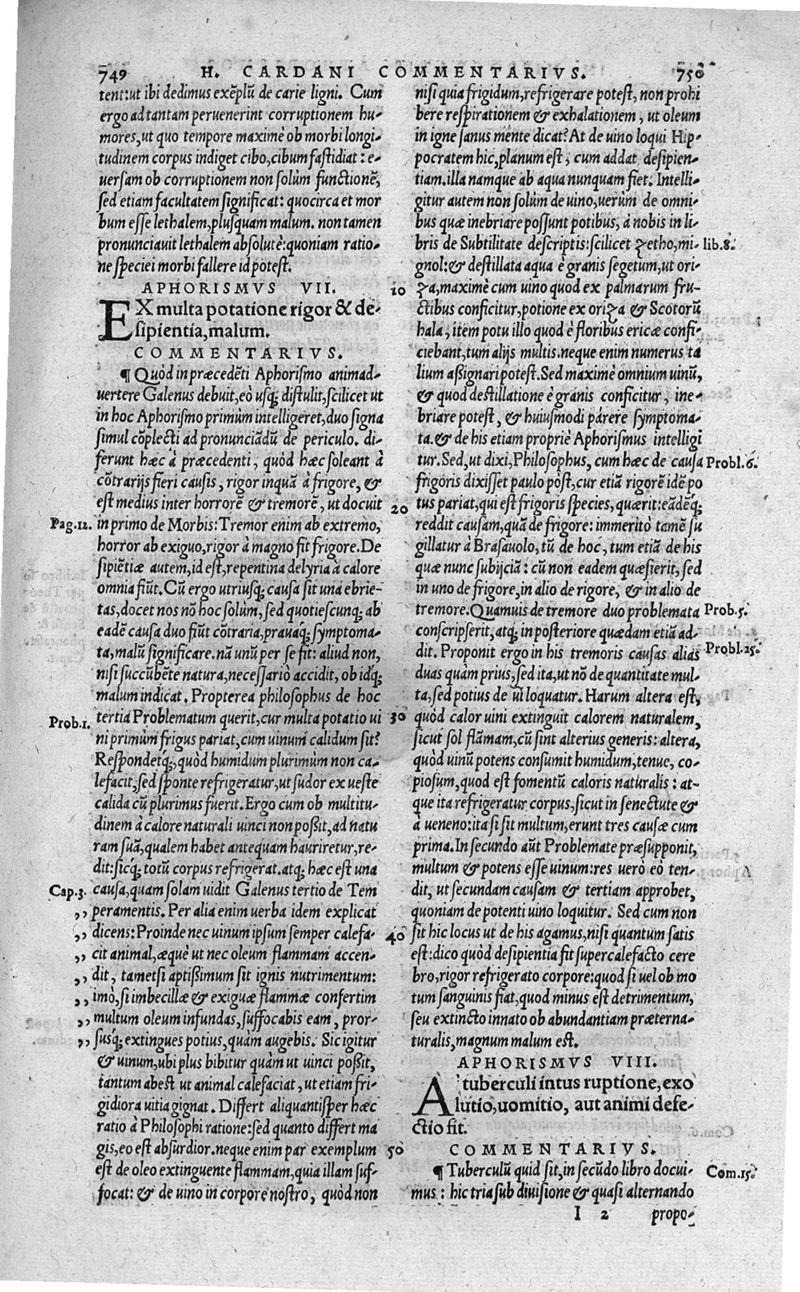 749 H. CARDANI COMMENTARIVS. 750
tent: ut ibi dedimus exẽplũ de carie ligni. Cum
ergo ad tantam peruenerint corruptionem hu-
mores, ut quo tempore maximè ob morbi longi-
tudinem corpus indiget cibo, cibum fastidiat: e-
uersam ob corruptionem non solùm functionẽ,
sed etiam facultatem significat: quocirca et mor
bum esse lethalem, plusquam malum. non tamen
pronunciauit lethalem absolutè: quoniam ratio-
ne speciei morbi fallere id potest.
APHORISMVS VII.
EX multa potatione rigor & de-
sipientia, malum.
COMMENTARIVS.
¶ Quòd in præcedẽti Aphorismo animad-
uertere Galenus debuit, eò usq; distulit, scilicet ut
in hoc Aphorismo primùm intelligeret, duo signa
simul cõplecti ad pronunciãdũ de periculo. di-
ferunt hæc à præcedenti, quòd hæc soleant à
cõtrarijs fieri causis, rigor inquã à frigore, &
est medius inter horrorẽ & tremorẽ, ut docuit
Pag. 12. in primo de Morbis: Tremor enim ab extremo,
horror ab exiguo, rigor à magno fit frigore. De
sipiẽtiæ autem, id est, repentina delyria à calore
omnia fiũt. Cũ ergo utriusq; causa sit una ebrie-
tas, docet nos nõ hoc solùm, sed quotiescunq; ab
eadẽ causa duo fiũt cõtraria, prauaq; symptoma-
ta, malũ significare. nã unũ per se fit: aliud non,
nisi succũbẽte natura, necessariò accidit, ob idq;
malum indicat. Propterea philosophus de hoc
Prob. 1. tertia Problematum querit, cur multa potatio ui
ni primùm frigus pariat, cum uinum calidum sit?
Respondetq;, quòd humidum plurimum non ca-
lefacit, sed sponte refrigeratur, ut sudor ex ueste
calida cũ plurimus fuerit. Ergo cum ob multitu-
dinem à calore naturali uinci non poßit, ad natu
ram suã, qualem habet antequam hauriretur, re-
dit: sicq; totũ corpus refrigerat. atq; hæc est una
Cap. 3. causa, quam solam uidit Galenus tertio de Tem
,, peramentis. Per alia enim uerba idem explicat
,, dicens: Proinde nec uinum ipsum semper calefa-
,, cit animal, æquè ut nec oleum flammam accen-
,, dit, tametsi aptißimum sit ignis nutrimentum:
,, imò, si imbecillæ & exiguæ flammæ confertim
,, multum oleum infundas, suffocabis eam, pror-
,, susq; extingues potius, quàm augebis. Sic igitur
& uinum, ubi plus bibitur quàm ut uinci poßit,
tantum abest ut animal calefaciat, ut etiam fri-
gidiora uitia gignat. Differt aliquantisper hæc
ratio à Philosophi ratione: sed quanto differt ma
gis, eo est absurdior. neque enim par exemplum
est de oleo extinguente flammam, quia illam suf-
focat: & de uino in corpore nostro, quòd non
nisi quia frigidum, refrigerare potest, non prohi
bere respirationem & exhalationem, ut oleum
in igne sanus mente dicat? At de uino loqui Hip-
pocratem hic, planum est, cum addat desipien-
tiam. illa namque ab aqua nunquam fiet. Intelli-
gitur autem non solùm de uino, uerùm de omni-
bus quæ inebriare possunt potibus, à nobis in li-
bris de Subtilitate descriptis: scilicet zetho, mi- lib. 8.
gnol: & destillata aqua è granis segetum, ut ori-
10 za, maximè cum uino quod ex palmarum fru-
ctibus conficitur, potione ex oriza & Scotorũ
hala, item potu illo quod è floribus ericæ confi-
ciebant, tum alijs multis. neque enim numerus ta
lium aßignari potest. Sed maximè omnium uinũ,
& quod destillatione è granis conficitur, ine-
briare potest, & huiusmodi parere symptoma-
ta. & de his etiam propriè Aphorismus intelligi
tur. Sed, ut dixi, Philosophus, cum hæc de causa Probl. 6.
frigoris dixisset paulo pòst, cur etiã rigorẽ idẽ po
20 tus pariat, qui est frigoris species, quærit: eãdẽq;
reddit causam, quã de frigore: immeritò tamẽ su
gillatur à Brasauolo, tũ de hoc, tum etiã de his
quæ nunc subijciã: cũ non eadem quæsierit, sed
in uno de frigore, in alio de rigore, & in alio de
tremore. Quamuis de tremore duo problemata Prob. 5.
conscripserit, atq; in posteriore quædam etiã ad-
dit. Proponit ergo in his tremoris causas alias Probl. 25.
duas quàm prius, sed ita, ut nõ de quantitate mul-
ta, sed potius de ui loquatur. Harum altera est,
30 quòd calor uini extinguit calorem naturalem,
sicut sol flãmam, cũ sint alterius generis: altera,
quòd uinũ potens consumit humidum, tenue, co-
piosum, quod est fomentũ caloris naturalis: at-
que ita refrigeratur corpus, sicut in senectute &
à ueneno: ita si sit multum, erunt tres causæ cum
prima. In secundo aũt Problemate præsupponit,
multum & potens esse uinum: res uerò eò ten-
dit, ut secundam causam & tertiam approbet,
quoniam de potenti uino loquitur. Sed cum non
40 sit hic locus ut de his agamus, nisi quantum satis
est: dico quòd desipientia fit supercalefacto cere
bro, rigor refrigerato corpore: quod si uel ob mo
tum sanguinis fiat, quod minus est detrimentum,
seu extincto innato ob abundantiam præterna-
turalis, magnum malum est.
APHORISMVS VIII.
A tuberculi intus ruptione, exo
lutio, uomitio, aut animi defe-
ctio fit.
50 COMMENTARIVS.
¶ Tuberculũ quid sit, in secũdo libro docui- Com. 15.
mus: hic tria sub diuisione & quasi alternando
I 2 propo-